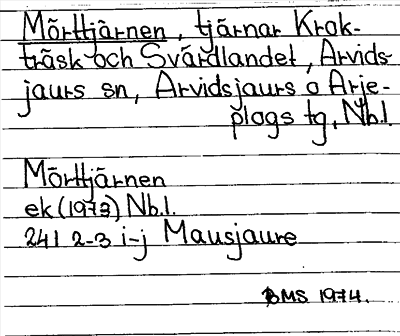 Mörttjärnen, tjärnar Krok-
träsk och Svärdlandet, Arvids-
jaurs sn, Arvidsjaurs o Arje-
plogs tg, Nb.l.
Mörttjärnen
ek (1973) Nb.l.
241 2-3 i-j Mausjaure
BMS 1974.